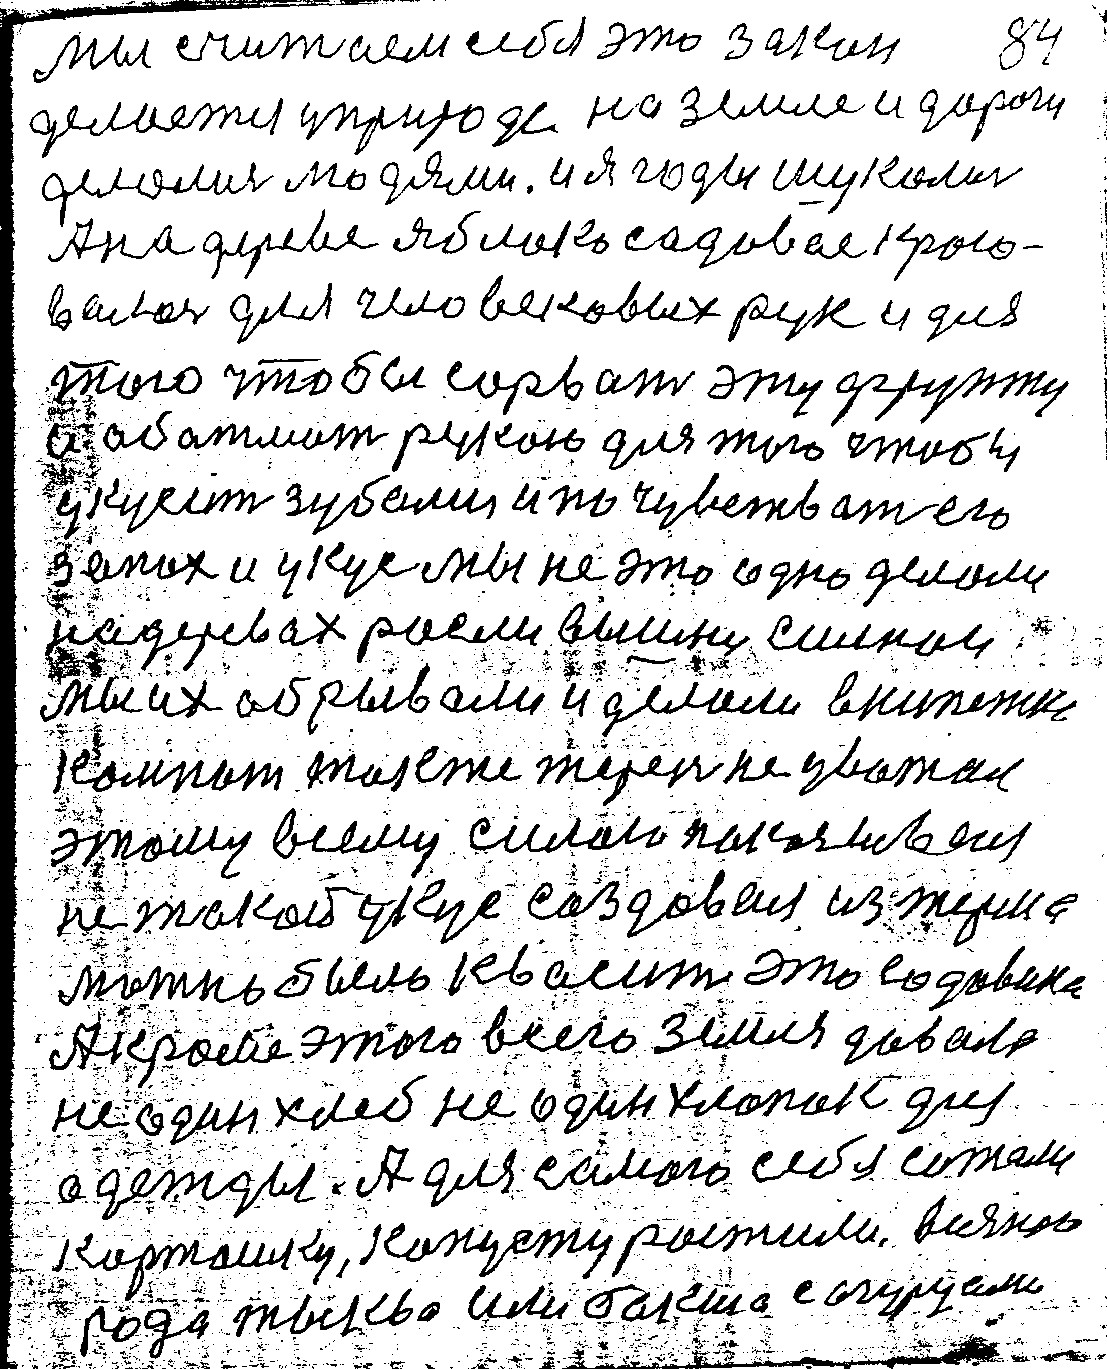 мы считаем себя это закон 84
делается уприроде на земле и дароги
делолис людями. и ягоды шуколис
А на дереве яблоко садовае красо-
валос для человековых рук и для
того чтобы сорват эту
и обатмат рукою для того чтобы
укусит зубами и почувствоват его
запах и укус мы не это одно делоли
на деревах росли вышни силной
мы их обрывали и делоли в кипетке
компот также терен не уважал
этому всему силою
не такой укус создовался из терна
можно было квасит это содовина
А кроме этого всего земля довала
не один хлеб не один хлопок для
одежды. А для самого себя сожали
картошку, капусту ростили. всякого
рода тыква или бакша согурцами